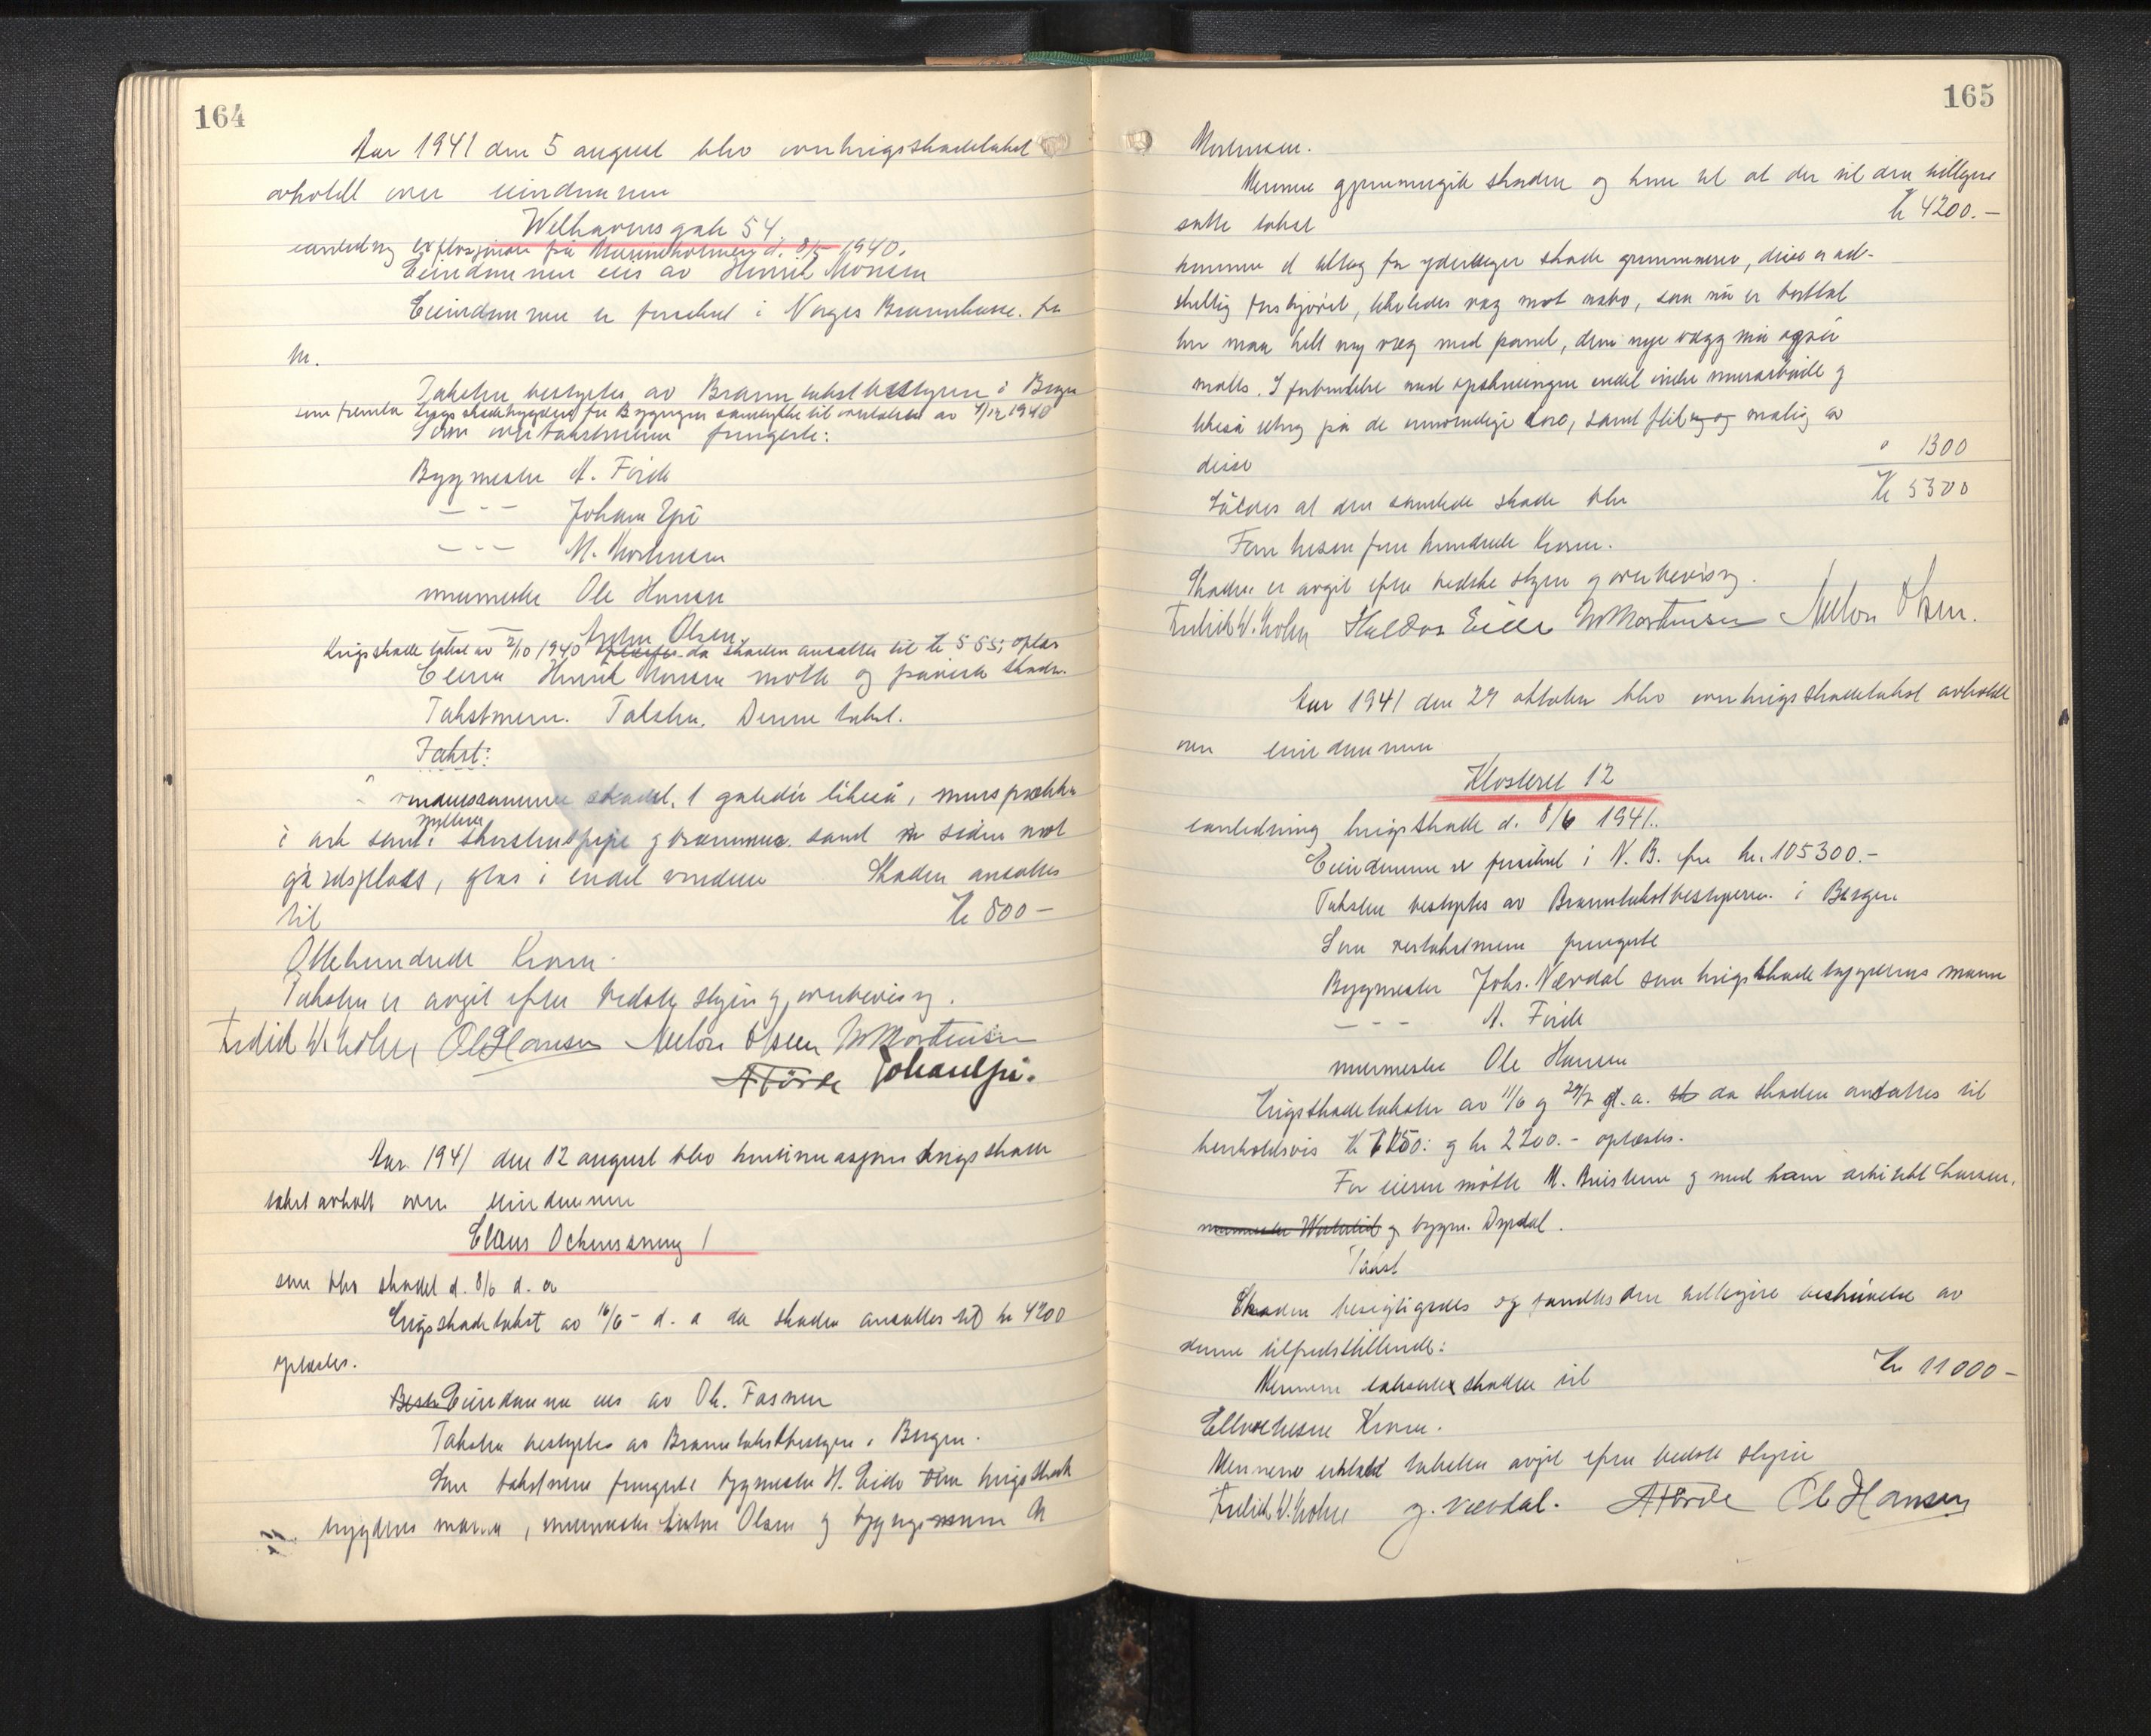 164
Aar 1941 den 5 august blev overkrigsskadetakst
avholdt over eiendommen
Welhavensgate 54.
anledning explosjonen på Marineholmen d. 8/5 1940.
Eiendommen eies av Henrik Monsen
Eiendommen er forsikret i Norges Brannkasse. for
kr.
Taksten bestyrtes av Branntakstbestyreren i Bergen
som fremla krigsskadetrygden for Bygninger samtykke til overtakst av 4/12 1940
Som overtakstmenn fungerte:
Byggmester A. Förde
— - - Johan Spi
— - - M. Mortensen
murmester Ole Hansen
— Anton Olsen.
Krigsskadetakst av 2/10 1940 da skaden ansattes til kr 555; oplæs
Eieren Henrik Monsen møtte og påviste skaden.
Takstmenn. Taksten. Denne takst.
Takst:
vinduesrammer skadet, 1 gatedör likeså, mursprækker
i ark samt i skorstenspipe g brannmur. samt siden mot
gårdsplass, glas i endel vinduer Skaden ansattes
til kr 800 —
Ottehundrede Kroner.
Taksten er avgit efter bedste skjön g overbevisng.
Fredrik W. Kohn Ole Hansen Anton Olsen M Mortensen
A Förde Johan Spi.
Aar 1941 den 12 august blev kontinuasjons krigsskade
takst avholdt over eiendommen
Claus Ockenssmug 1
som blev skadet d. 8/6 d. a
Krigsskadetakst av 16/6 - d. a da skaden ansattes til kr 4200
oplæstes.
Eiendommen eies av Ole. Fasmer
Taksten bestyrtes av Branntakstbestyrer i Bergen.
Som takstmenn fungerte byggmester H. Eide som krigsskade
trygdens mann, murmester Anton Olsen g bygngsmann M
165
Mortensen.
Mennene gjennemgik skaden og kom til at der til den tidligere
satte takst kr 4200.—
kommer et tillæg for yderligere skade grunnmurer, disse er ad-
skillig forskjövet, likeledes væg mot nabo, som nu er borttat
her maa helt ny væg med panel, denne nye vægg må også
males. I forbindelse med opstivningen endel indre murarbeide g
likeså utbng på de innvendige löse, samt flikng og malng av
disse " 1300
Således at den samlede skade blir kr 5500
Fem tusen fem hundrede Kroner.
Skaden er avgit efter bedste skjön g overbevisng.
Fredrik W. Kohn Haldor Eide M Mortensen Anton Olsen.
Aar 1941 den 29 oktober blev overkrigsskadetakst avholdt
over eiendommen
Klosteret 12
anledning krigsskade d. 8/6 1941.
Eiendommen er forsikret i N. B. for kr. 105300.—
Taksten bestyrtes av Branntakstbestyreren i Bergen
Som overtakstmenn fungerte
Byggmester Johs. Nævdal som krigsskadetrygdens mann
— - - A. Förde
murmester Ole Hansen
Krigsskadetakster av 11/6 g 29/7 d. a. da skaden ansattes til
henholdsvis kr 7250: g kr 2200.- oplæstes.
For eieren mötte M. Breistein g med ham arkitekt Larsen,
murmester g byggm. Dyrdal.
Takst
Skaden besigtigedes og fandtes den tidligere beskrivelse av
denne tilfredsstillende:
Mennene taksterte skaden til kr 11000 —
Ellevetusen Kroner.
Mennene erklærte taksten avgit efter bedste skjön
Fredrik W. Kohn J. Nævdal. A Förde Ole Hansen